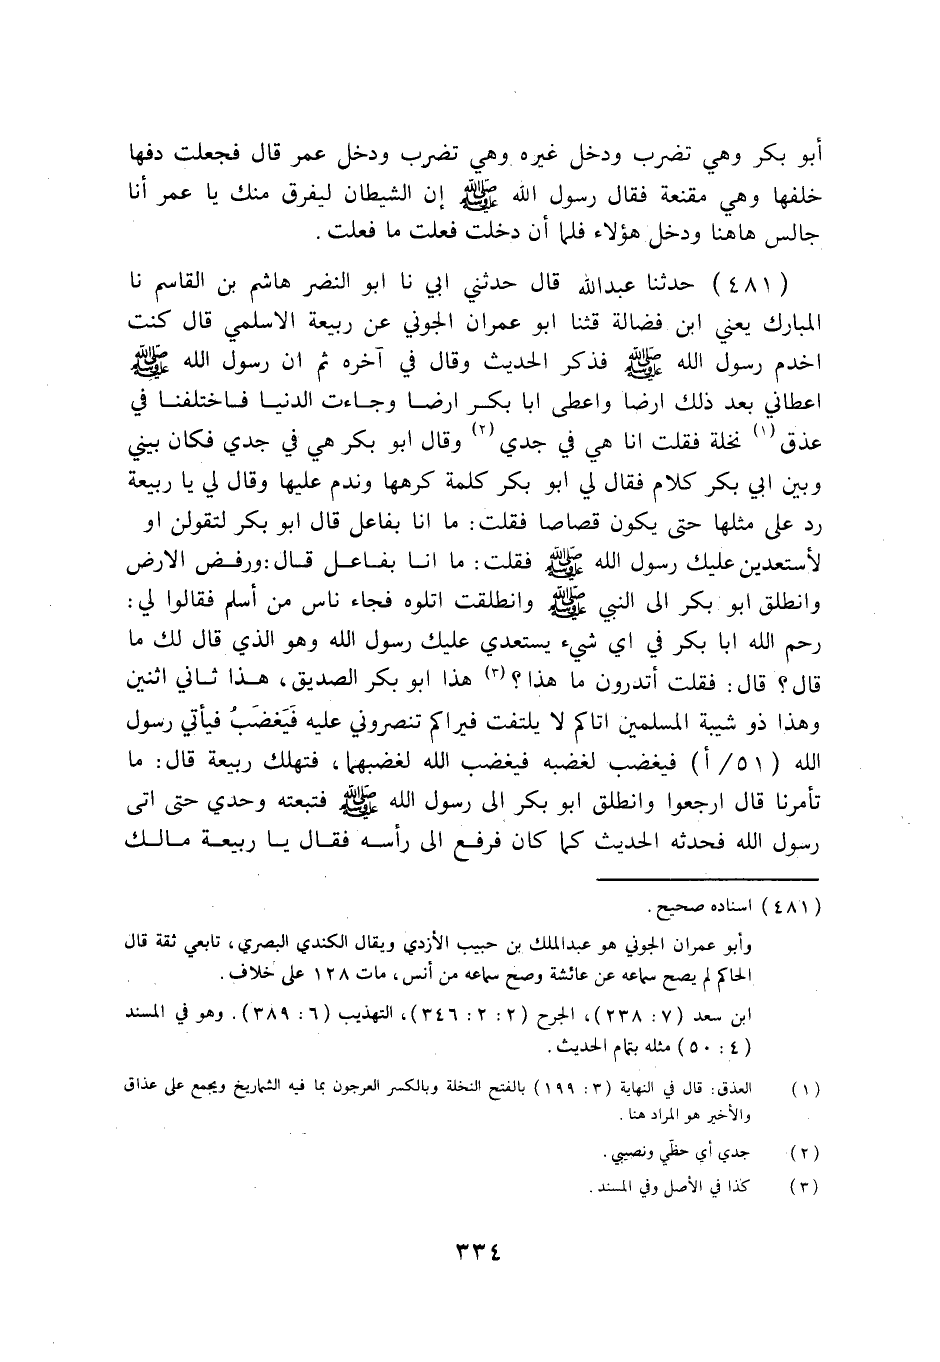 أبو بكر وهي تضرب ودخل غيره وهي تضرب ودخل عمر قال فجعلت دفها
خلفها وهي مقنعة فقال رسول الله ﷺ إن الشيطان ليفرق منك يا عمر أنا
جالس هاهنا ودخل هؤلاء فلما أن دخلت فعلت ما فعلت .
( ٤٨١ ) حدثنا عبدالله قال حدثني ابي نا ابو النضر هاشم بن القاسم نا
المبارك يعني ابن فضالة قثنا ابو عمران الجوني عن ربيعة الاسلمي قال كنت
اخدم رسول الله ﷺ فذكر الحديث وقال في آخره ثم ان رسول الله ﷺ
اعطاني بعد ذلك ارضا واعطى ابا بكر ارضا وجاءت الدنيا فاختلفنا في
عذق (١) نخلة فقلت انا هي في جدي (٢) وقال ابو بكر هي في جدي فكان بيني
وبين ابي بكر كلام فقال لي ابو بكر كلمة كرهها وندم عليها وقال لي يا ربيعة
رد علي مثلها حتى يكون قصاصا فقلت : ما انا بفاعل قال ابو بكر لتقولن او
لأستعدين عليك رسول الله ﷺ فقلت : ما انا بفاعل قال : ورفض الارض
وانطلق ابو بكر الى النبي ﷺ وانطلقت اتلوه فجاء ناس من أسلم فقالوا لي :
رحم الله ابا بكر في اي شيء يستعدي عليك رسول الله وهو الذي قال لك ما
قال ؟ قال : فقلت أتدرون ما هذا ؟ (٣) هذا ابو بكر الصديق ، هذا ثاني اثنين
وهذا ذو شيبة المسلمين اتاكم لا يلتفت فيراكم تنصروني عليه فَيَغضَبُ فيأتي رسول
الله ( ٥١ / أ ) فيغضب لغضبه فيغضب الله لغضبهما ، فتهلك ربيعة قال : ما
تأمرنا قال ارجعوا وانطلق ابو بكر الى رسول الله ﷺ فتبعته وحدي حتى اتى
رسول الله فحدثه الحديث كما كان فرفع الى رأسه فقال يا ربيعة مالك
( ٤٨١ ) اسناده صحيح .
وأبو عمران الجوني هو عبدالملك بن حبيب الأزدي ويقال الكندي البصري ، تابعي ثقة قال
الحاكم لم يصح سماعه عن عائشة وصح سماعه من أنس ، مات ١٢٨ على خلاف .
ابن سعد ( ٧ : ٢٣٨ ) ، الجرح ( ٢ : ٢ : ٣٤٦ ) ، التهذيب ( ٦ : ٣٨٩ ) . وهو في المسند
( ٤ : ٥٠ ) مثله بتمام الحديث .
( ١ ) العذق : قال في النهاية ( ٣ : ١٩٩ ) بالفتح النخلة وبالكسر العرجون بما فيه الشماريخ ويجمع على عذاق
والأخير هو المراد هنا .
( ٢ ) جدي أي حظّي ونصيبي .
( ٣ ) كذا في الأصل وفي المسند .
٣٣٤